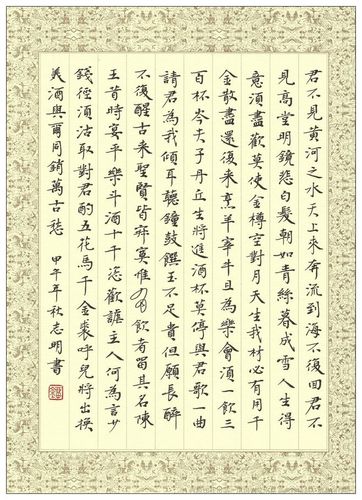 君不見黃河之水天上來奔流到海不復回君不
見高堂明鏡悲白髮朝如青絲暮成雪人生得
意須盡歡莫使金樽空對月天生我材必有用千
金散盡還復來烹羊宰牛且為樂會須一飲三
百杯岑夫子丹丘生將進酒杯莫停與君歌一曲
請君為我傾耳聽鐘鼓饌玉不足貴但願長醉
不復醒古來聖賢皆寂寞惟有飲者留其名陳
王昔時宴平樂斗酒十千恣歡謔主人何為言少
錢徑須沽取對君酌五花馬千金裘呼兒將出換
美酒與爾同銷萬古愁 甲午年秋志明書